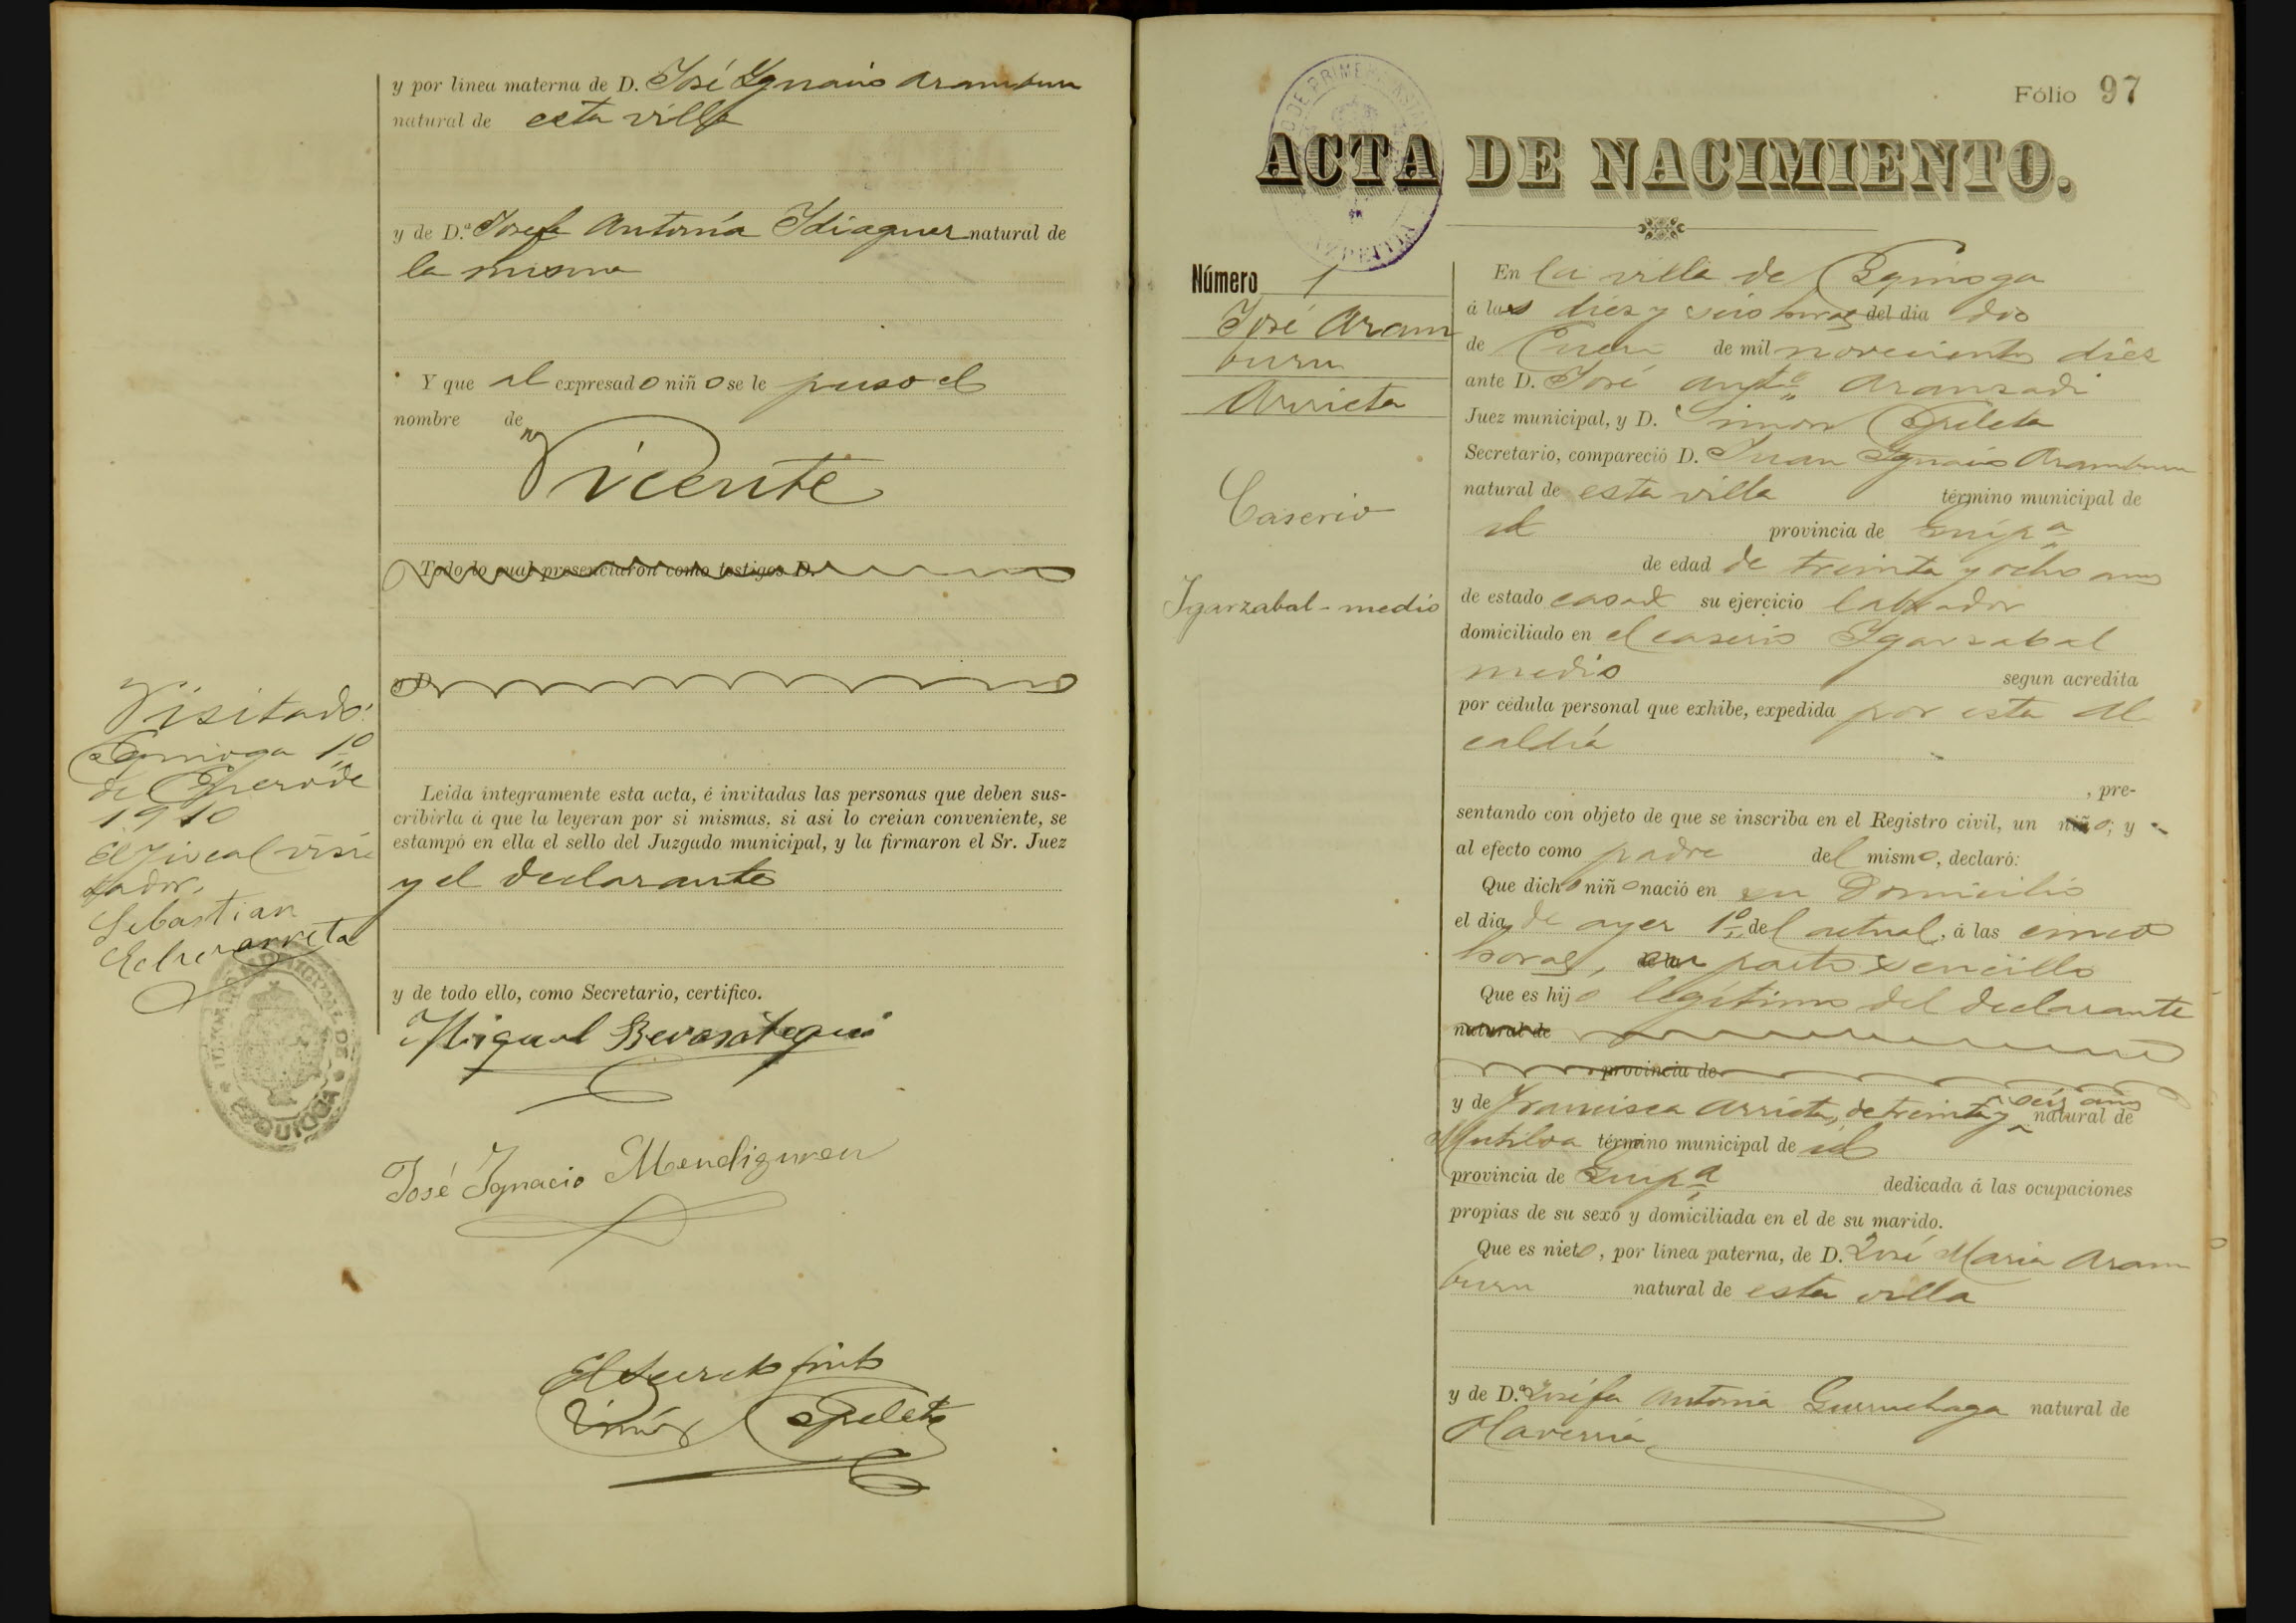 y por linea materna de D. José Ygnacio Aramburu
natural de esta villa
y de D.ª Josefa Antonia Idiaquez natural de
la misma
Y que al expresado niño se le puso el
nombre de
Vicente
Todo lo cual presenciaron como testigos D.
y D.
Visitado:
Ezquioga 1º
de Enero de
1910
El Fiscal visi
tador,
Sebastian
Echevarreta
JUZGADO MUNICIPAL DE
EZQUIOGA
Leida integramente esta acta, é invitadas las personas que deben sus-
cribirla á que la leyeran por si mismas, si asi lo creian conveniente, se
estampó en ella el sello del Juzgado municipal, y la firmaron el Sr. Juez
y el declarante
y de todo ello, como Secretario, certifico.
Miguel Berasategui
José Ignacio Mendiguren
El Secreto
Simón Apeleta
Fólio 97
ACTA DE NACIMIENTO.
DE PRIMERA INSTAN
AZPEITIA
Número 1
José Aram
buru
Arrieta
Caserio
Igarzabal-medio
En la villa de Ezquioga
á las diez y seis horas del dia dos
de Enero de mil novecientos diez
ante D. José Antº Aranzadi
Juez municipal, y D. Simon Apeleta
Secretario, compareció D. Juan Ygnacio Aramburu
natural de esta villa término municipal de
id provincia de Guipª
de edad de treinta y ocho años
de estado casado su ejercicio labrador
domiciliado en el caserio Ygarzabal
medio segun acredita
por cédula personal que exhibe, expedida por esta Al
caldía
, pre-
sentando con objeto de que se inscriba en el Registro civil, un niño; y
al efecto como padre del mismo, declaró:
Que dicho niño nació en su Domicilio
el dia de ayer 1º del actual, á las cinco
horas, en parto sencillo
Que es hijo legítimo del declarante
natural de
provincia de
y de Francisca Arrieta, de treinta y seis años natural de
Mutiloa término municipal de id
provincia de Guipª dedicada á las ocupaciones
propias de su sexo y domiciliada en el de su marido.
Que es nieto, por línea paterna, de D. José Maria Aram
buru natural de esta villa
y de D.ª Josefa Antonia Gurruchaga natural de
Olaverria